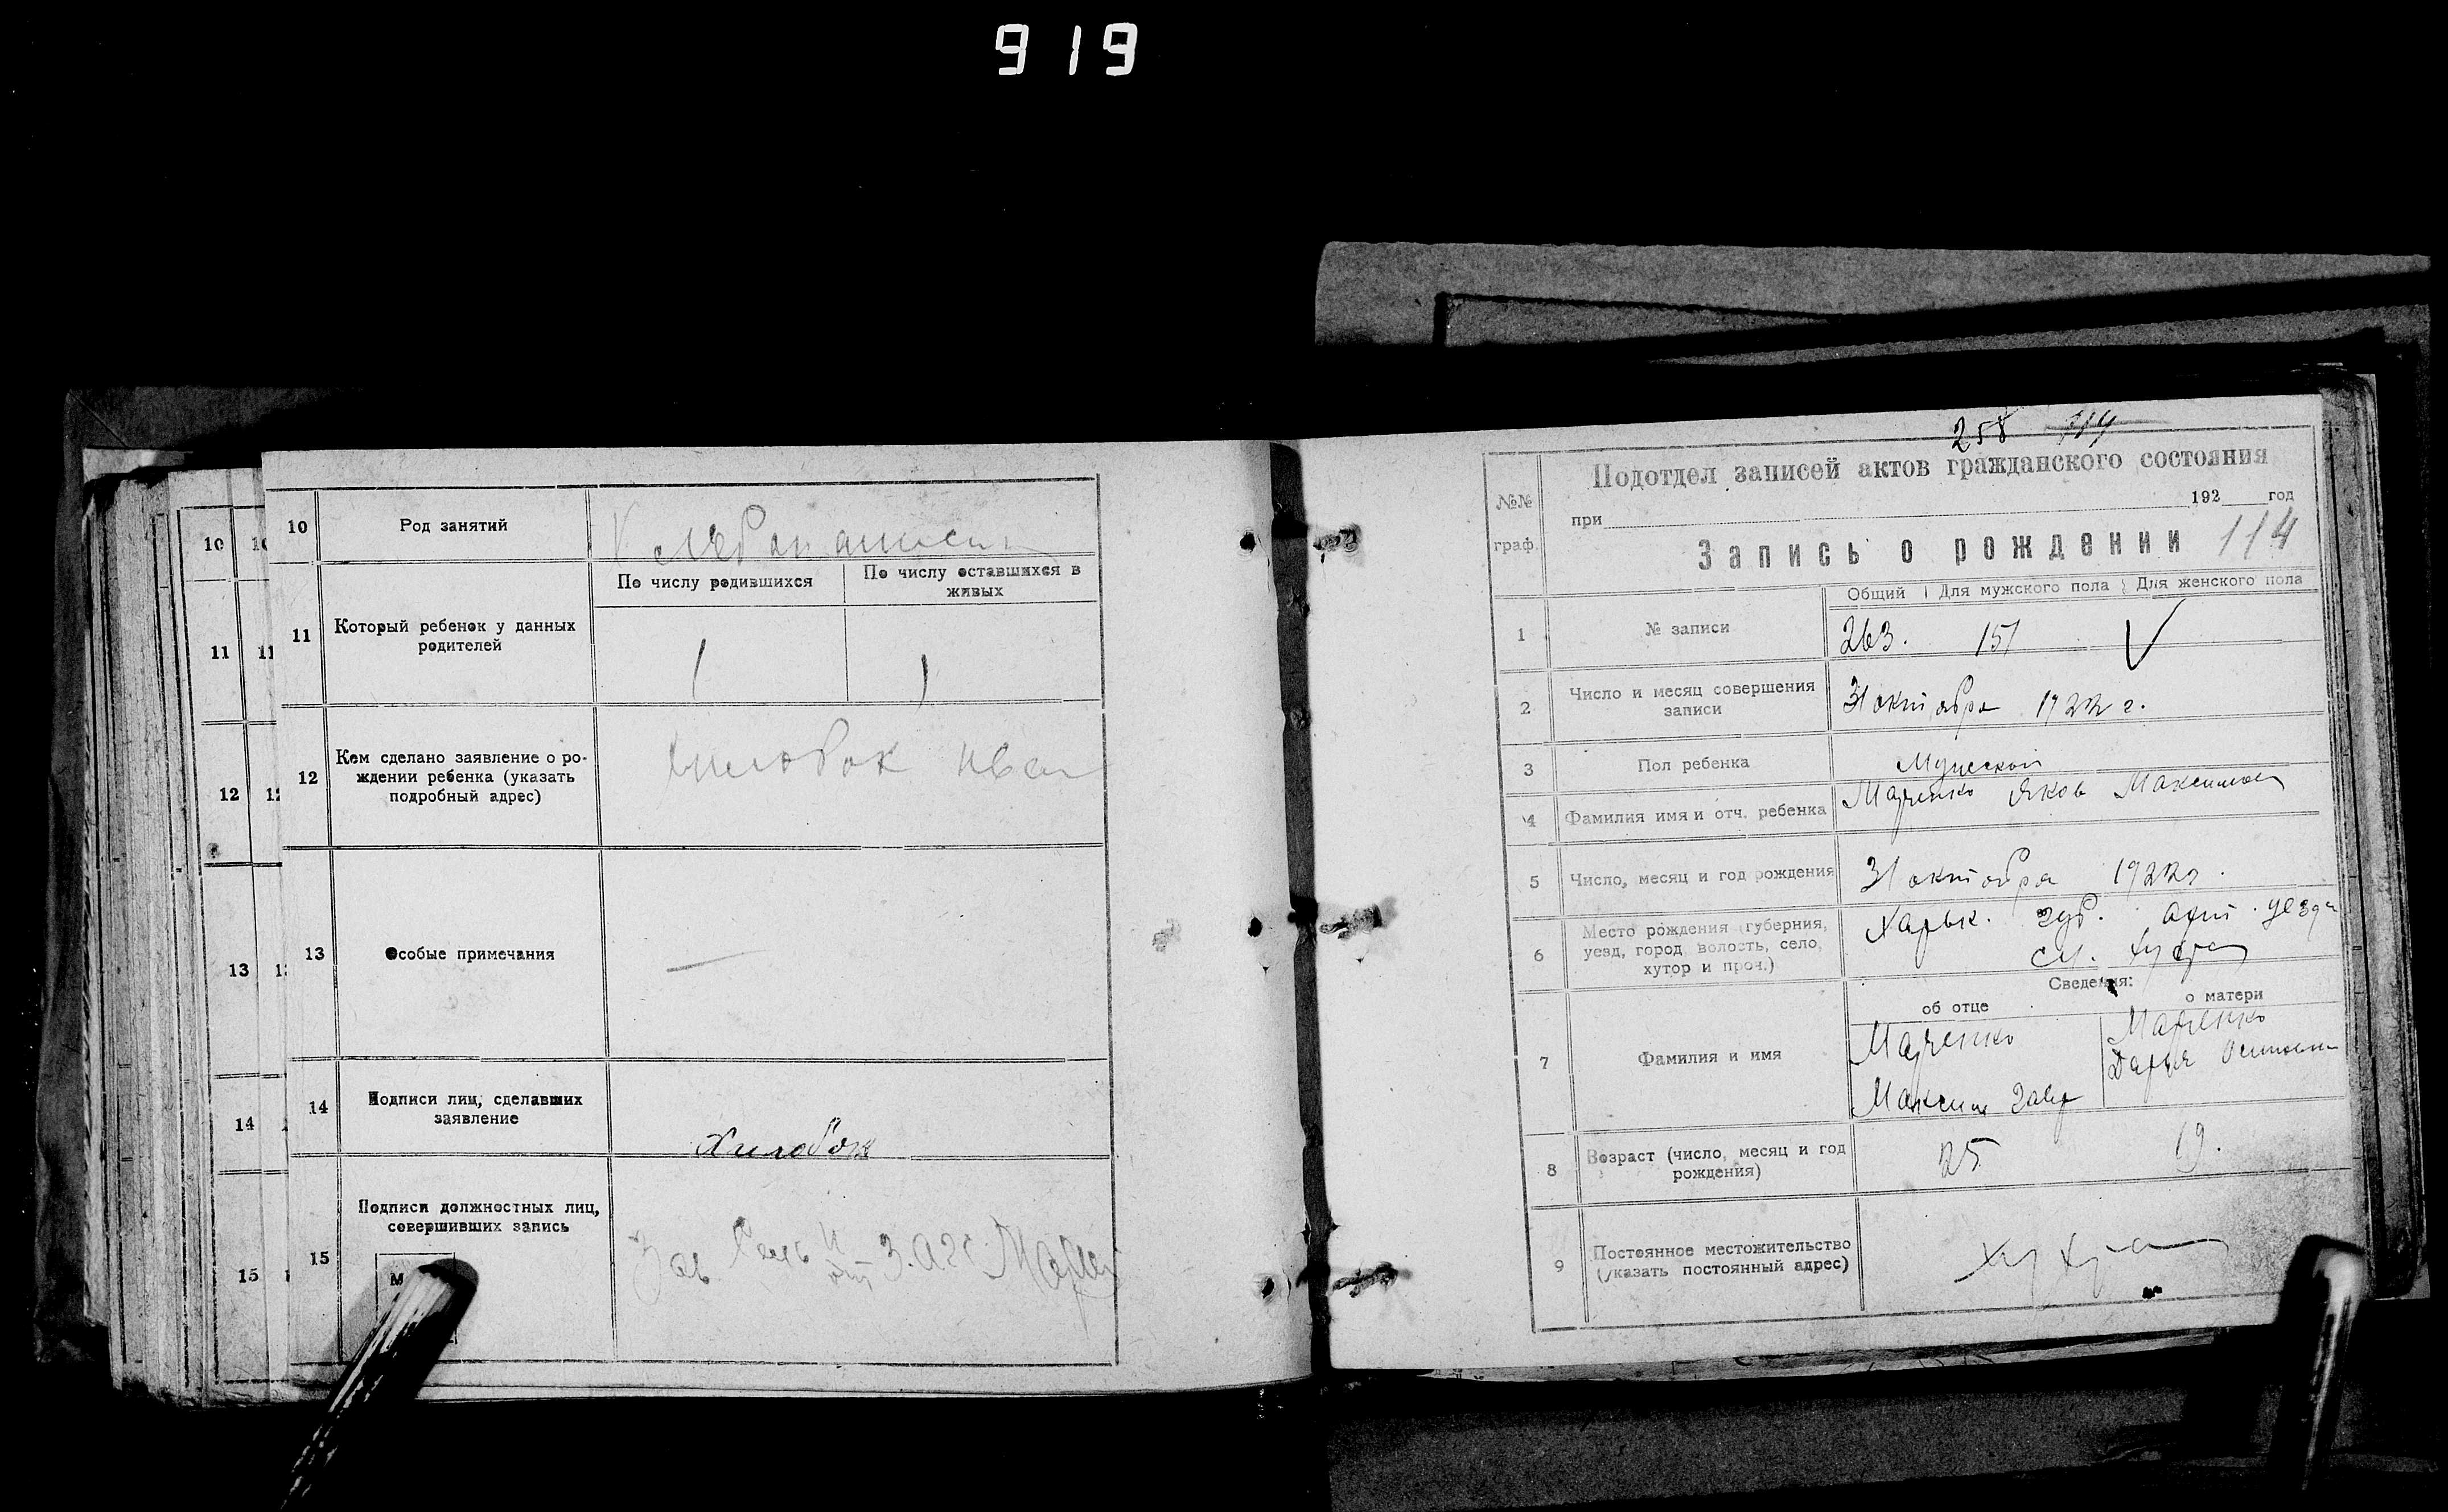 919
10 10 10 Род занятий
По числу родившихся По числу оставшихся в
живых
11 11 11 Который ребенок у данных
родителей
1 1
12 12 12 Кем сделано заявление о ро-
ждении ребенка (указать
подробный адрес)
Иван
13 13 13 Особые примечания
—
14 14 Подписи лиц, сделавших
заявление
Хилобок
15 15 Подписи должностных лиц,
совершивших запись
М
Зав
258 714
№№
граф.
Подотдел записей актов гражданского состояния
при 192 год
Запись о рождении 114
Общий Для мужского пола Для женского пола
1 № записи 263. 151 V
2 Число и месяц совершения
записи
31 октября 1922 г.
3 Пол ребенка Мужской
4 Фамилия имя и отч. ребенка Яков Максимов
5 Число, месяц и год рождения 31 октября 1922 г.
6 Место рождения (губерния,
уезд, город волость, село,
хутор и проч.)
Харьк. губ. уезда
сл.
Сведения:
об отце о матери
7 Фамилия и имя
Максим Дарья
8 Возраст (число, месяц и год
рождения)
25 19.
9 Постоянное местожительство
(указать постоянный адрес)